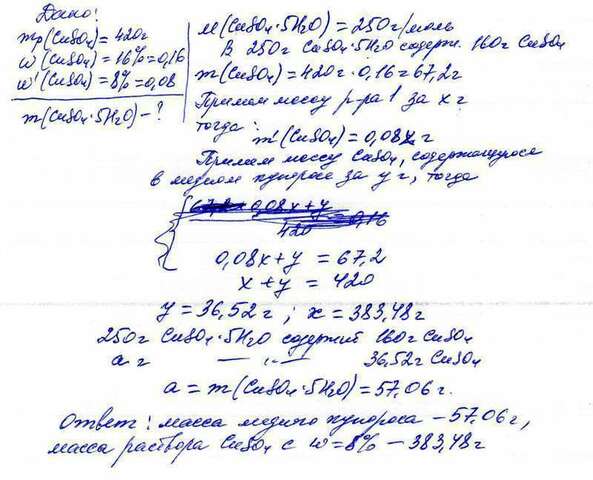 Дано:
mр(CuSO₄)=420г
ω(CuSO₄)=16%=0,16
ω'(CuSO₄)=8%=0,08
m(CuSO₄·5H₂O)-?
M(CuSO₄·5H₂O)=250г/моль
В 250г CuSO₄·5H₂O содерж. 160г CuSO₄
m(CuSO₄)=420г·0,16=67,2г
Примем массу р-ра 1 за x г
тогда: m'(CuSO₄)=0,08x г
Примем массу CuSO₄, содержащуюся
в медном купоросе за y г, тогда
67,2 = 0,08x+y
420 =0,16
0,08x+y = 67,2
x+y = 420
y=36,52г ; x=383,48г
250г CuSO₄·5H₂O содержит 160г CuSO₄
a г — „ — 36,52г CuSO₄
a = m(CuSO₄·5H₂O)=57,06г.
Ответ: масса медного купороса – 57,06г,
масса раствора CuSO₄ с ω=8% – 383,48г